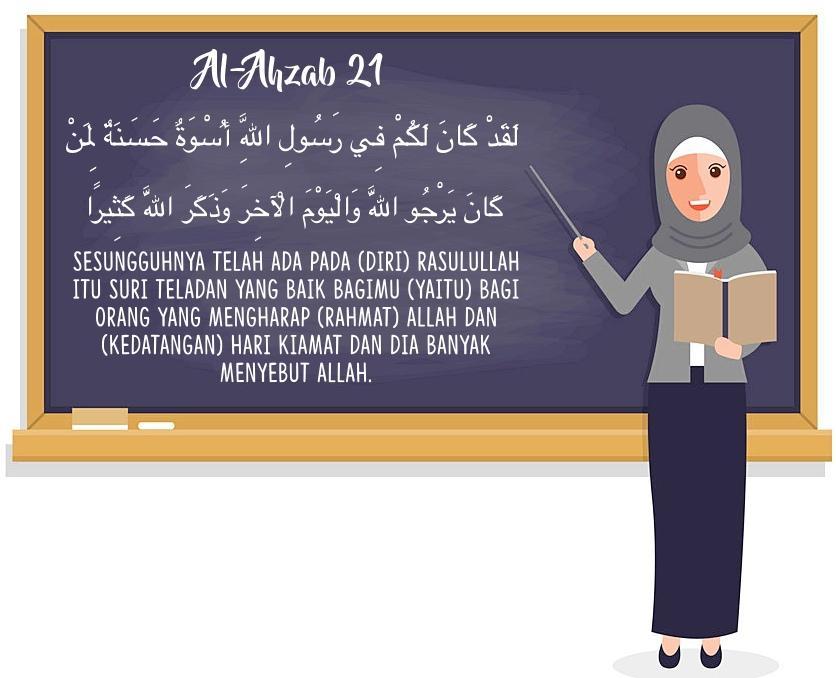 Al-Ahzab 21
لَقَدْ كَانَ لَكُمْ فِي رَسُولِ اللَّهِ أُسْوَةٌ حَسَنَةٌ لِمَنْ
كَانَ يَرْجُو اللَّهَ وَالْيَوْمَ الْآخِرَ وَذَكَرَ اللَّهَ كَثِيرًا
SESUNGGUHNYA TELAH ADA PADA (DIRI) RASULULLAH
ITU SURI TELADAN YANG BAIK BAGIMU (YAITU) BAGI
ORANG YANG MENGHARAP (RAHMAT) ALLAH DAN
(KEDATANGAN) HARI KIAMAT DAN DIA BANYAK
MENYEBUT ALLAH.